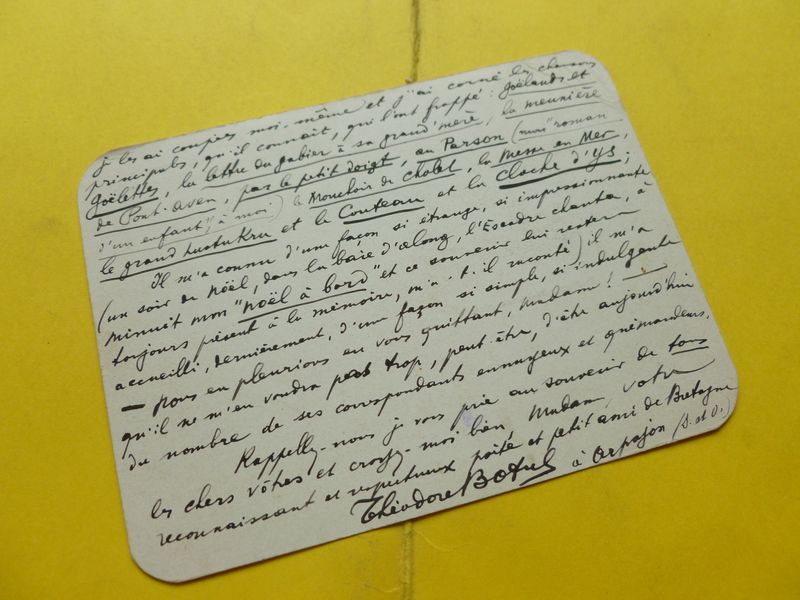 je les ai coupées moi-même et j'ai corné les chansons
principales, qu'il connait, qui l'ont frappé : goëlands et
goëlettes, la lettre du gabier à sa grand'mère, la meunière
de Pont-Aven, par le petit doigt, au Pardon (mon "roman
d'un enfant", à moi) le Mouchoir de Cholet, la Messe en Mer,
le grand Lustukru et le Couteau et la Cloche d'Ys ;
Il m'a connu d'une façon si étrange, si impressionnante
(un soir de Noël, dans la baie d'along, l'Escadre chanta, à
minuit mon "Noël à bord" et ce souvenir lui restera
toujours présent à la mémoire, m'a-t-il raconté) il m'a
accueilli, dernièrement, d'une façon si simple, si indulgente
— nous en pleurions en vous quittant, Madame ! —
qu'il ne m'en voudra pas trop, peut-être, d'être aujourd'hui
du nombre de ses correspondants ennuyeux et quémandeurs.
Rappellez-nous je vous prie au souvenir de tous
les chers vôtres et croyez-moi bien, Madame, votre
reconnaissant et respectueux poète et petit ami de Bretagne
Théodore Botrel à Arpajon (S. et O.)